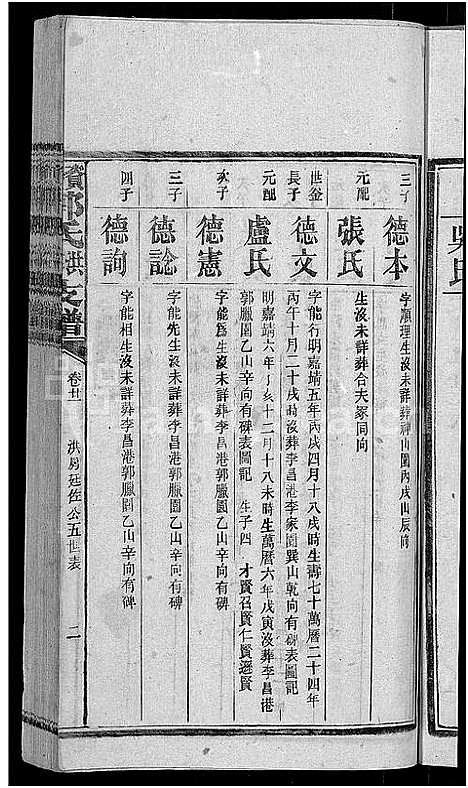 吳氏
三子 德本 字順理生沒未詳葬神山園丙戌山辰向
元配 張氏 生沒未詳葬合夫冢同向
世金長子 德文 字能行明嘉靖五年丙戌四月十八戌時生壽七十萬曆二十四年
丙午十月二十戌時沒葬李昌港李家園巽山乾向有碑表圖記
元配 盧氏 明嘉靖六年丁亥十二月十八未時生萬曆六年戊寅沒葬李昌港
郭臘園乙山辛向有碑表圖記 生子四 才賢召賢仁賢遜賢
次子 德憲 字能爲生沒未詳葬李昌港郭臘園乙山辛向有碑
三子 德諗 字能先生沒未詳葬李昌港郭臘園乙山辛向有碑
四子 德詢 字能相生沒未詳葬李昌港郭臘園乙山辛向有碑
氏洪支譜
卷廿一
洪房廷佐公五世表
二